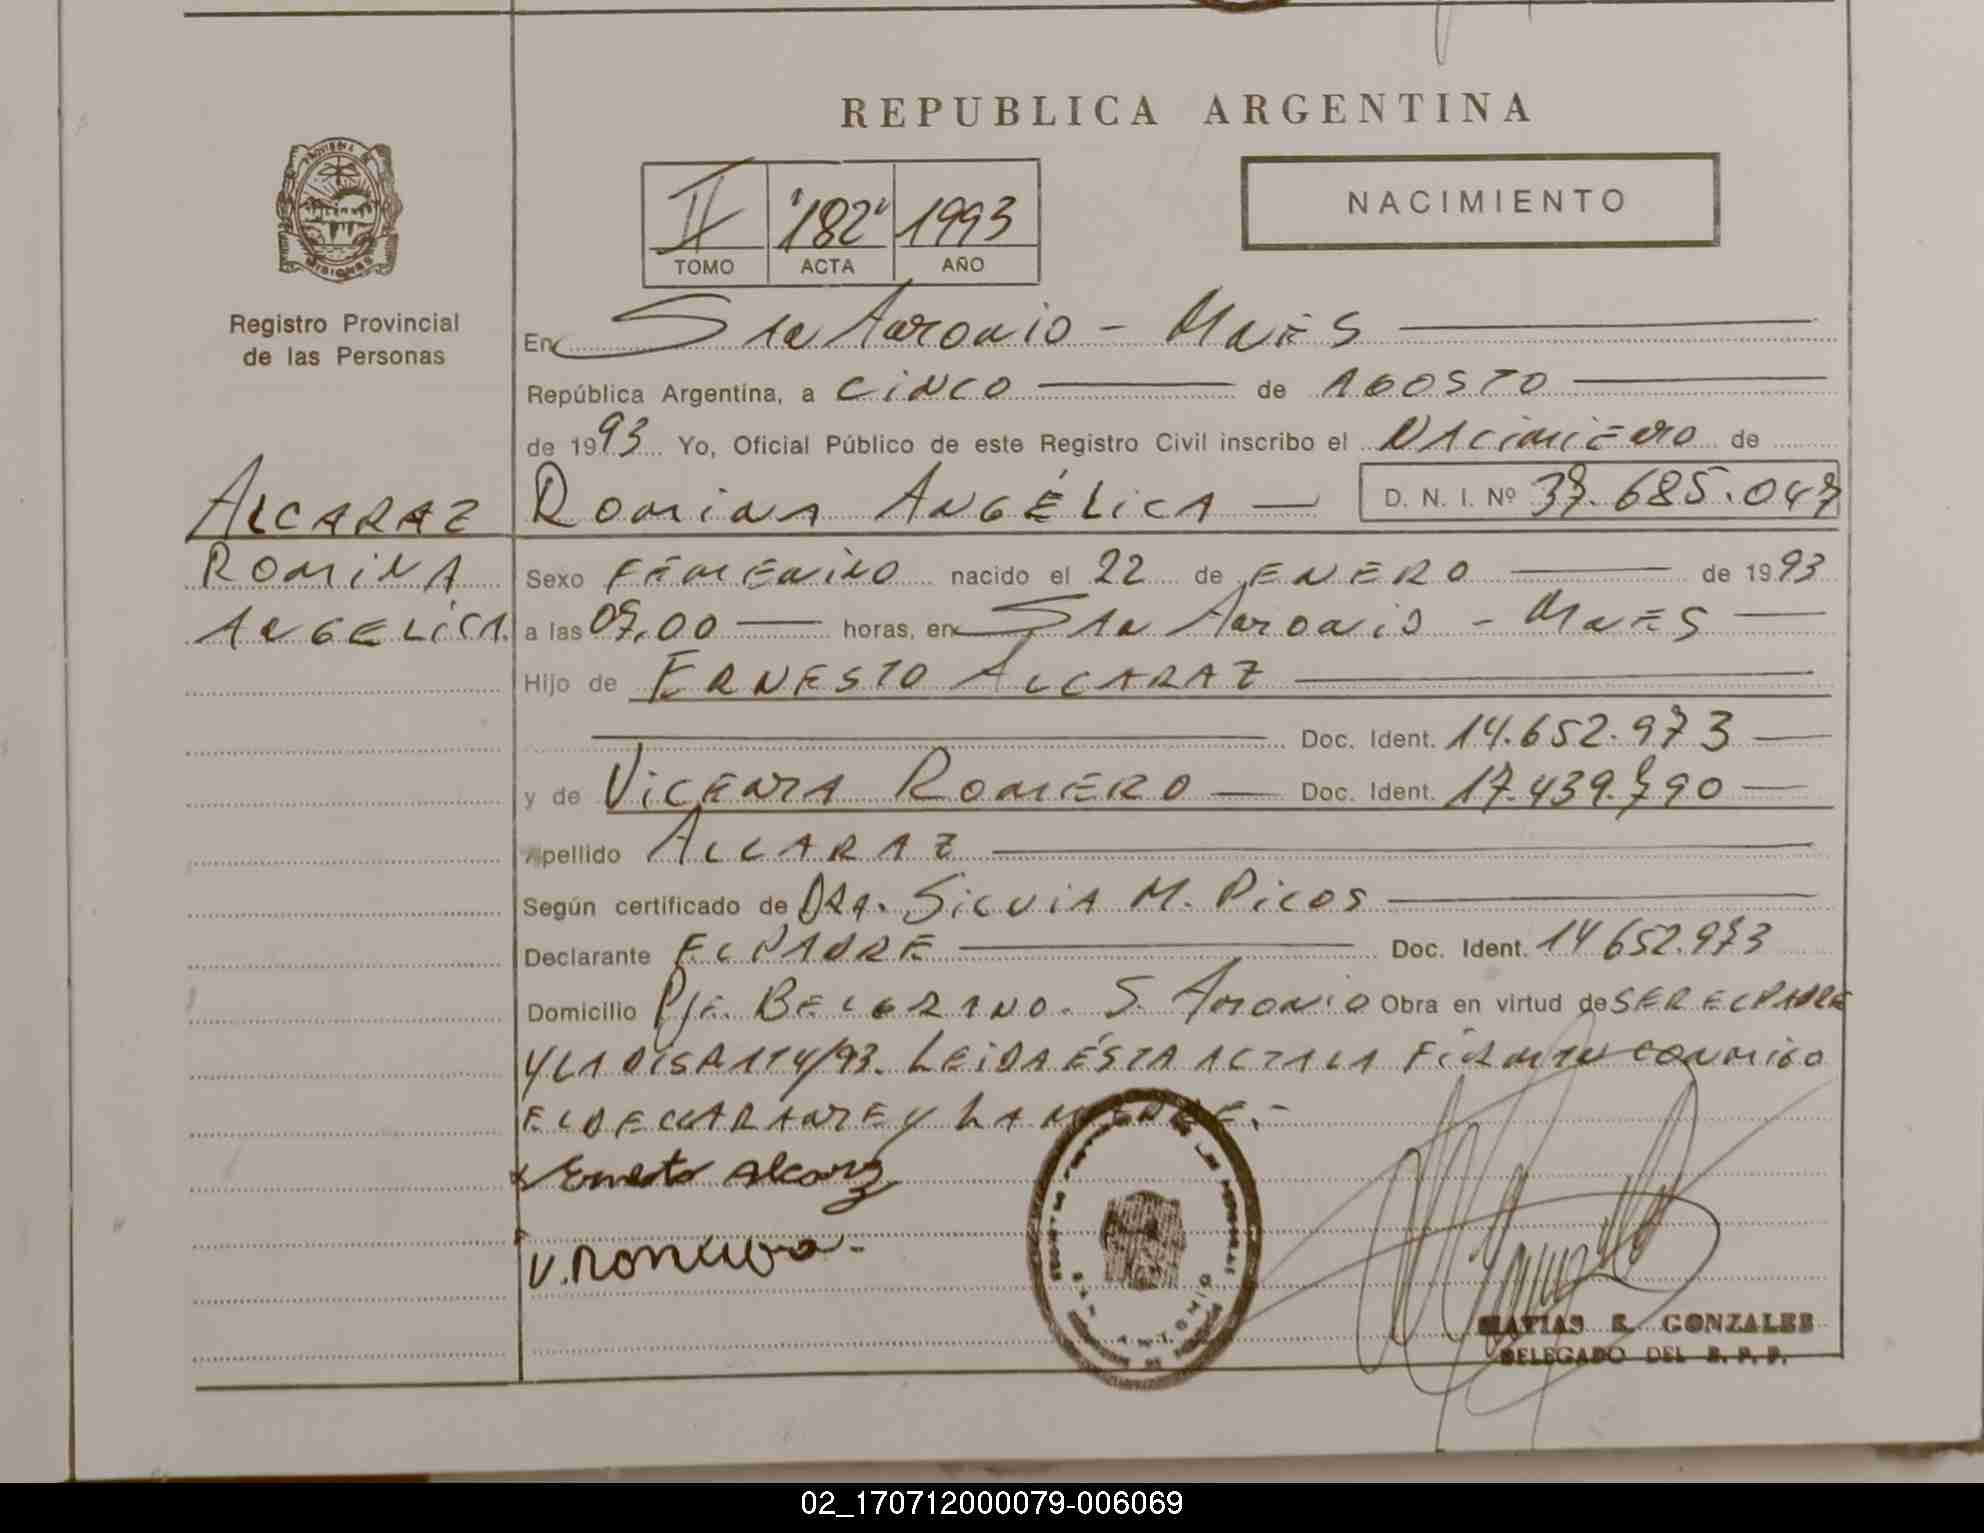 REPUBLICA ARGENTINA
PROVINCIA DE
MISIONES
Registro Provincial
de las Personas
II "182" 1993
TOMO ACTA AÑO
NACIMIENTO
En San Antonio - Mnes
República Argentina, a CINCO de AGOSTO
de 1993 Yo, Oficial Público de este Registro Civil inscribo el Nacimiento de
ALCARAZ
ROMINA
ANGELICA
ROMINA ANGÉLICA D. N. I. Nº 37.685.047
Sexo FEMENINO nacido el 22 de ENERO de 1993
a las 07,00 horas, en San Antonio - Mnes
Hijo de ERNESTO ALCARAZ
Doc. Ident. 14.652.973
y de VICENTA ROMERO Doc. Ident. 17.439.790
Apellido ALCARAZ
Según certificado de DRA. SILVIA M. PICOS
Declarante EL PADRE Doc. Ident. 14 652.973
Domicilio Pje. BELGRANO. S. Antonio Obra en virtud de SER EL PADRE
Y LA DISP. 114/93. LEIDA ÉSTA ACTA LA FIRMAN CONMIGO
EL DECLARANTE Y LA MADRE.-
Ernesto Alcaraz
V. Romero.
SAN ANTONIO
MATIAS E. GONZALES
DELEGADO DEL R. P. P.
02_170712000079-006069